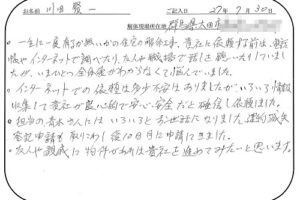 お名前 川田 賢一 ご記入日 27年 7月 30日
解体現場所在地 群馬県太田市
・一生に一度有るか無いかの住宅の解体工事、貴社に依頼する前は、電話
帳やインターネットで調べたり、友人や職場で話を聞いたりしていまし
たが、いまひとつ全体像がわからなくて悩んでいました。
・インターネットでの依頼は多少不安はありましたがいろいろ情報
収集して貴社が良心的で安心・安全だと確信し依頼しました。
・担当の青木さんにはいろいろとお世話になりました。建物滅失
登記申請も取りこわし後10日目に申請できました。
・友人や親戚に物件があれば貴社を進めてみたいと思います。